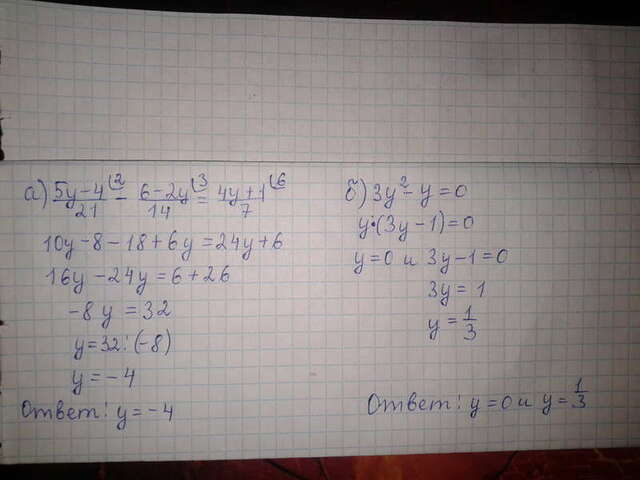 а) (5y-4)/21 ⌊2 - (6-2y)/14 ⌊3 = (4y+1)/7 ⌊6
10y-8-18+6y=24y+6
16y-24y=6+26
-8y=32
y=32:(-8)
y=-4
Ответ: y=-4
б) 3y²-y=0
y·(3y-1)=0
y=0 и 3y-1=0
3y=1
y=1/3
Ответ: y=0 и y=1/3